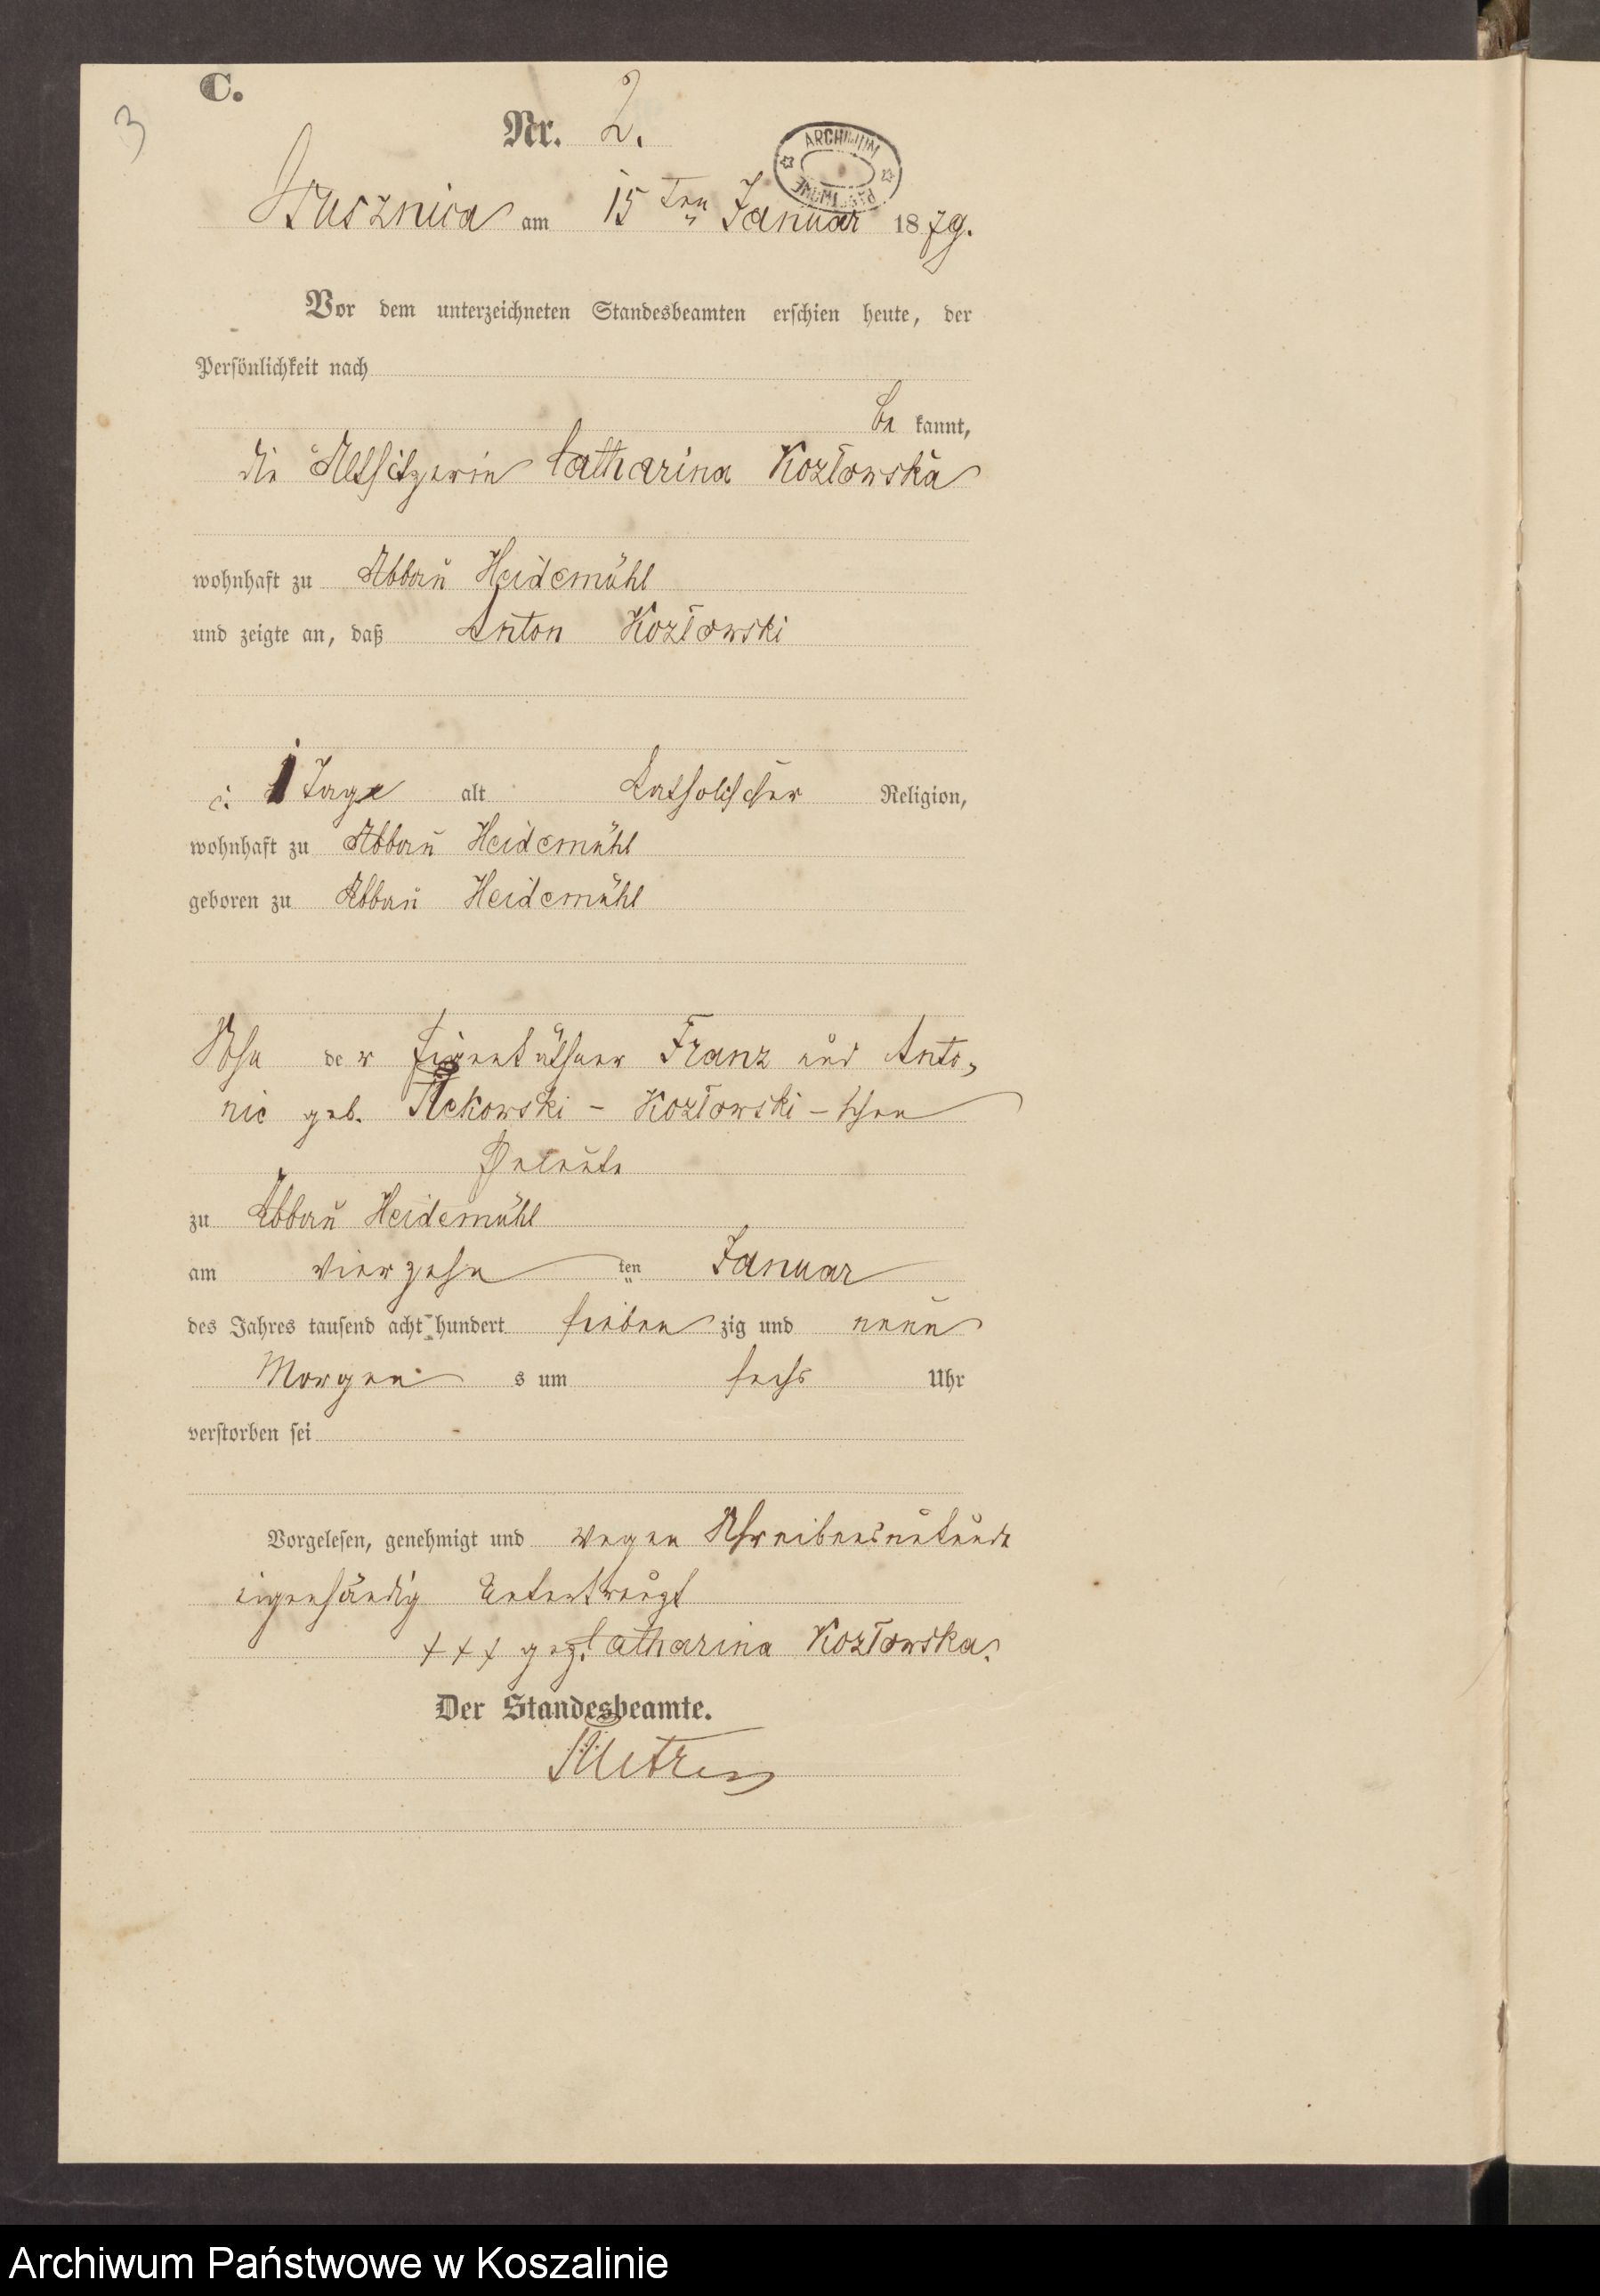 C.
3
Nr. 2.
ARCHIWUM
PAŃSTWOWE
am 15ten Januar 1879.
Vor dem unterzeichneten Standesbeamten erschien heute, der
Persönlichkeit nach
be kannt,
die Altsitzerin Catharina Kozłowska
wohnhaft zu Abbau Heidemühl
und zeigte an, daß Anton Kozłowski
1 Tage alt katholischer Religion,
wohnhaft zu Abbau Heidemühl
geboren zu Abbau Heidemühl
Sohn der Eigenthümer Franz und Anto-
nie geb. Kozłowski - schen
Eheleute
zu Abbau Heidemühl
am vierzehn ten Januar
des Jahres tausend acht hundert sieben zig und neun
Morgen s um sechs Uhr
verstorben sei
Vorgelesen, genehmigt und wegen Schreibensunkunde
eigenhändig Unterkreuzt
+++ gez. Catharina Kozłowska.
Der Standesbeamte.
Archiwum Państwowe w Koszalinie